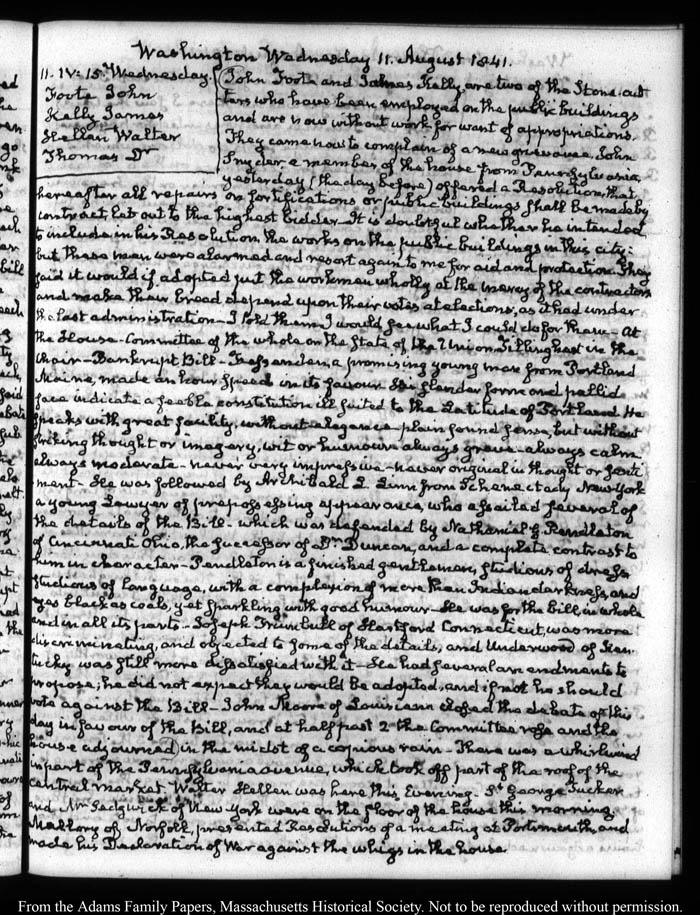 Washington Wednesday 11. August 1841.
11. IV: 15. Wednesday.
Foote John
Kelly James
Hellen Walter
Thomas Dr
John Foote and James Kelly, are two of the Stone-cut
ters who have been employed on the public buildings
and are now without work for want of appropriations.
They came now to complain of a new grievance, John
Snyder a member of the house from Pennsylvania,
yesterday (the day before) offered a Resolution, that
hereafter all repairs on fortifications or public buildings shall be made by
contract, let out to the highest bidder— It is doubtful whether he intended
to include in his Resolution, the works on the public buildings in this city;
but these men were alarmed and resort again to me for aid and protection. They
said it would if adopted put the workmen wholly at the mercy of the contractors
and make their bread depend upon their votes at elections, as it had under
the last administration— I told them I would see what I could do for them— At
the House— Committee of the whole on the State of the Union, Tillinghast in the
Chair— Bankrupt Bill— Fessenden a promising young man from Portland
Maine, made an hour speech in its favour. His slender form and pallid
face indicate a feeble constitution ill suited to the Latitude of Portland. He
speaks with great facility, without elegance— plain sound sense, but without
striking thought or imagery, wit or humour always grave— always calm
always moderate— never very impressive— never original in thought or senti
ment— He was followed by Archibald L Linn from Schenectady New York
a young Lawyer of prepossessing appearance, who assailed several of
the details of the Bill— which was defended by Nathaniel G. Pendleton
of Cincinnati Ohio, the successor of Dr Duncan, and a complete contrast to
him in character— Pendleton is a finished gentleman, studious of dress
studious of language, with a complexion of more than Indian darkness, and
eyes black as coals, yet sparkling with good humour— He was for the bill, in whole
and in all its parts— Joseph Trumbull of Hartford Connecticut, was more
discriminating, and objected to some of the details, and Underwood of Ken
tucky was still more dissatisfied with it— He had several amendments to
propose; he did not expect they would be adopted, and if not he should
vote against the Bill— John Moore of Louisiana closed the debate of this
day in favour of the Bill, and at half past 2 the Committee rose and the
house adjourned, in the midst of a copious rain— There was a whirlwind
in part of the Pennsylvania avenue, which took off part of the roof of the
central market. Walter Hellen was here this Evening. St George Tucker
and Mr Sedgwick of New York were on the floor of the house this morning.
Mallory of Norfolk, presented Resolutions of a meeting at Portsmouth, and
made his Declaration of War against the whigs in the house.
From the Adams Family Papers, Massachusetts Historical Society. Not to be reproduced without permission.